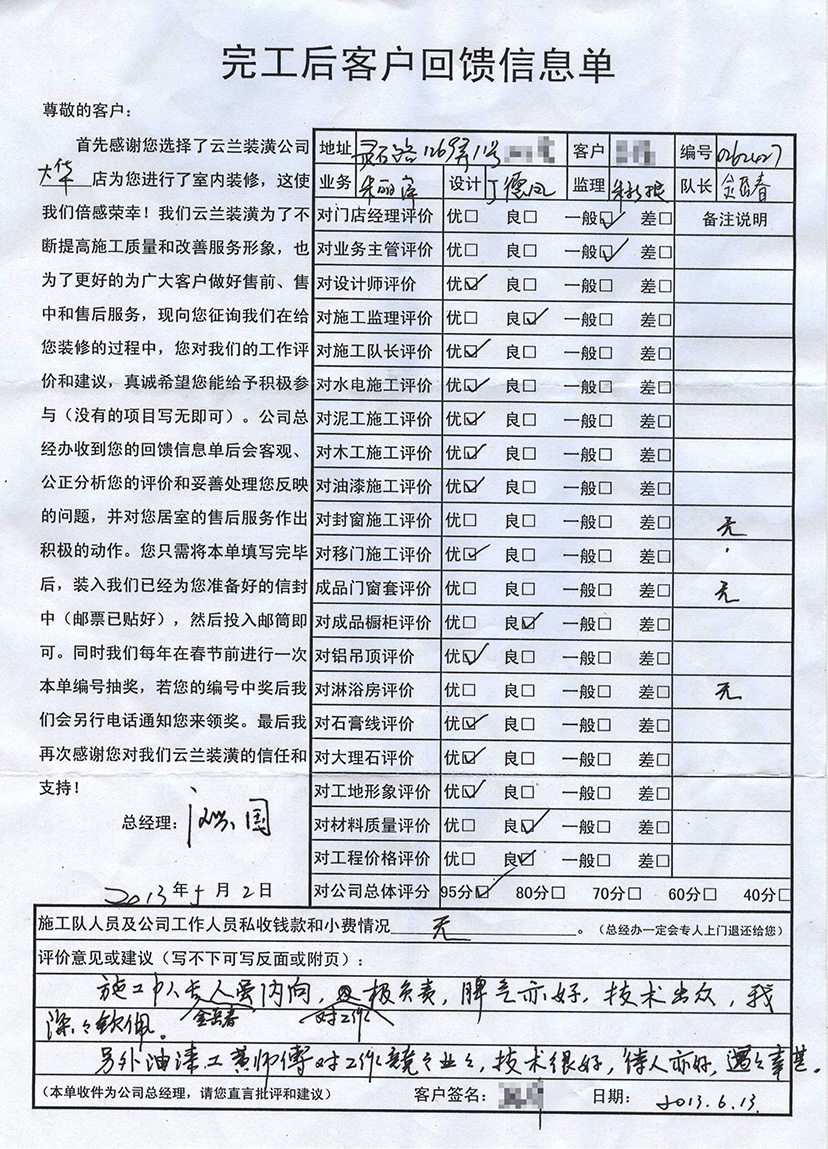 完工后客户回馈信息单
尊敬的客户：
首先感谢您选择了云兰装潢公司
大华 店为您进行了室内装修，这使
我们倍感荣幸！我们云兰装潢为了不
断提高施工质量和改善服务形象，也
为了更好的为广大客户做好售前、售
中和售后服务，现向您征询我们在给
您装修的过程中，您对我们的工作评
价和建议，真诚希望您能给予积极参
与（没有的项目写无即可）。公司总
经办收到您的回馈信息单后会客观、
公正分析您的评价和妥善处理您反映
的问题，并对您居室的售后服务作出
积极的动作。您只需将本单填写完毕
后，装入我们已经为您准备好的信封
中（邮票已贴好），然后投入邮筒即
可。同时我们每年在春节前进行一次
本单编号抽奖，若您的编号中奖后我
们会另行电话通知您来领奖。最后我
再次感谢您对我们云兰装潢的信任和
支持！
总经理：
2013年5月2日
地址 灵石路1269弄1号 客户 编号 0262427
业务 朱丽萍 设计 丁德凤 监理 队长 金岳春
对门店经理评价 优□ 良□ 一般☑ 差□ 备注说明
对业务主管评价 优□ 良□ 一般☑ 差□
对设计师评价 优☑ 良□ 一般□ 差□
对施工监理评价 优□ 良☑ 一般□ 差□
对施工队长评价 优☑ 良□ 一般□ 差□
对水电施工评价 优☑ 良□ 一般□ 差□
对泥工施工评价 优☑ 良□ 一般□ 差□
对木工施工评价 优☑ 良□ 一般□ 差□
对油漆施工评价 优☑ 良□ 一般□ 差□
对封窗施工评价 优□ 良□ 一般□ 差□ 无
对移门施工评价 优☑ 良□ 一般□ 差□
成品门窗套评价 优□ 良□ 一般□ 差□ 无
对成品橱柜评价 优□ 良☑ 一般□ 差□
对铝吊顶评价 优☑ 良□ 一般□ 差□
对淋浴房评价 优□ 良□ 一般□ 差□ 无
对石膏线评价 优☑ 良□ 一般□ 差□
对大理石评价 优☑ 良□ 一般□ 差□
对工地形象评价 优☑ 良□ 一般□ 差□
对材料质量评价 优□ 良☑ 一般□ 差□
对工程价格评价 优□ 良☑ 一般□ 差□
对公司总体评分 95分☑ 80分□ 70分□ 60分□ 40分□
施工队人员及公司工作人员私收钱款和小费情况 无 。（总经办一定会专人上门退还给您）
评价意见或建议（写不下可写反面或附页）：
施工队长人蛮内向，极负责，脾气亦好，技术出众，我
金岳春 对工作
深深钦佩。
另外油漆工黄师傅对工作兢兢业业，技术很好，待人亦好，遇之幸甚。
（本单收件为公司总经理，请您直言批评和建议） 客户签名： 日期：2013.6.13.